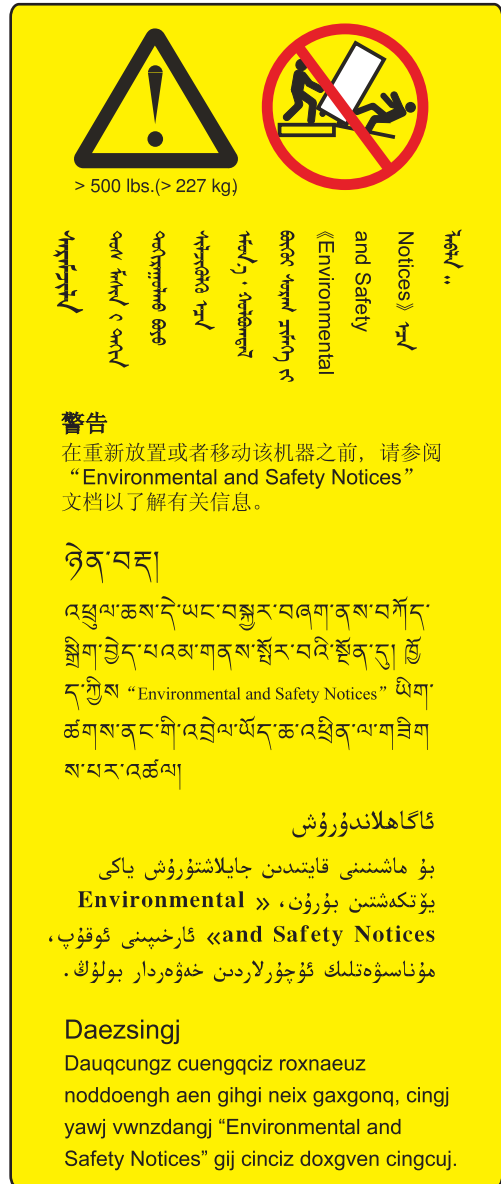 > 500 lbs.(> 227 kg.)
ᠲᠤᠰ ᠮᠠᠰᠢᠨ ᠢ ᠳᠠᠬᠢᠨ
《Environmental
and Safety
Notices》 ᠡᠴᠡ
警告
在重新放置或者移动该机器之前，请参阅
“Environmental and Safety Notices”
文档以了解有关信息。
ཉེན་བརྡ།
འཕྲུལ་ཆས་དེ་ཡང་བསྐྱར་བཞག་ནས་བཀོད་
སྒྲིག་བྱེད་པའམ་གནས་སྤོར་བའི་སྔོན་དུ། ཁྱོ
ད་ཀྱིས “Environmental and Safety Notices” ཡིག་
ཚགས་ནང་གི་འབྲེལ་ཡོད་ཆ་འཕྲིན་ལ་གཟིག
ས་པར་འཚལ།
ئاگاھلاندۇرۇش
بۇ ماشىنىنى قايتىدىن جايلاشتۇرۇش ياكى
يۆتكەشتىن بۇرۇن، « Environmental
and Safety Notices» ئارخىپىنى ئوقۇپ،
مۇناسىۋەتلىك ئۇچۇرلاردىن خەۋەردار بولۇڭ.
Daezsingj
Dauqcungz cuengqciz roxnaeuz
noddoengh aen gihgi neix gaxgonq, cingj
yawj vwnzdangj “Environmental and
Safety Notices” gij cinciz doxgven cingcuj.